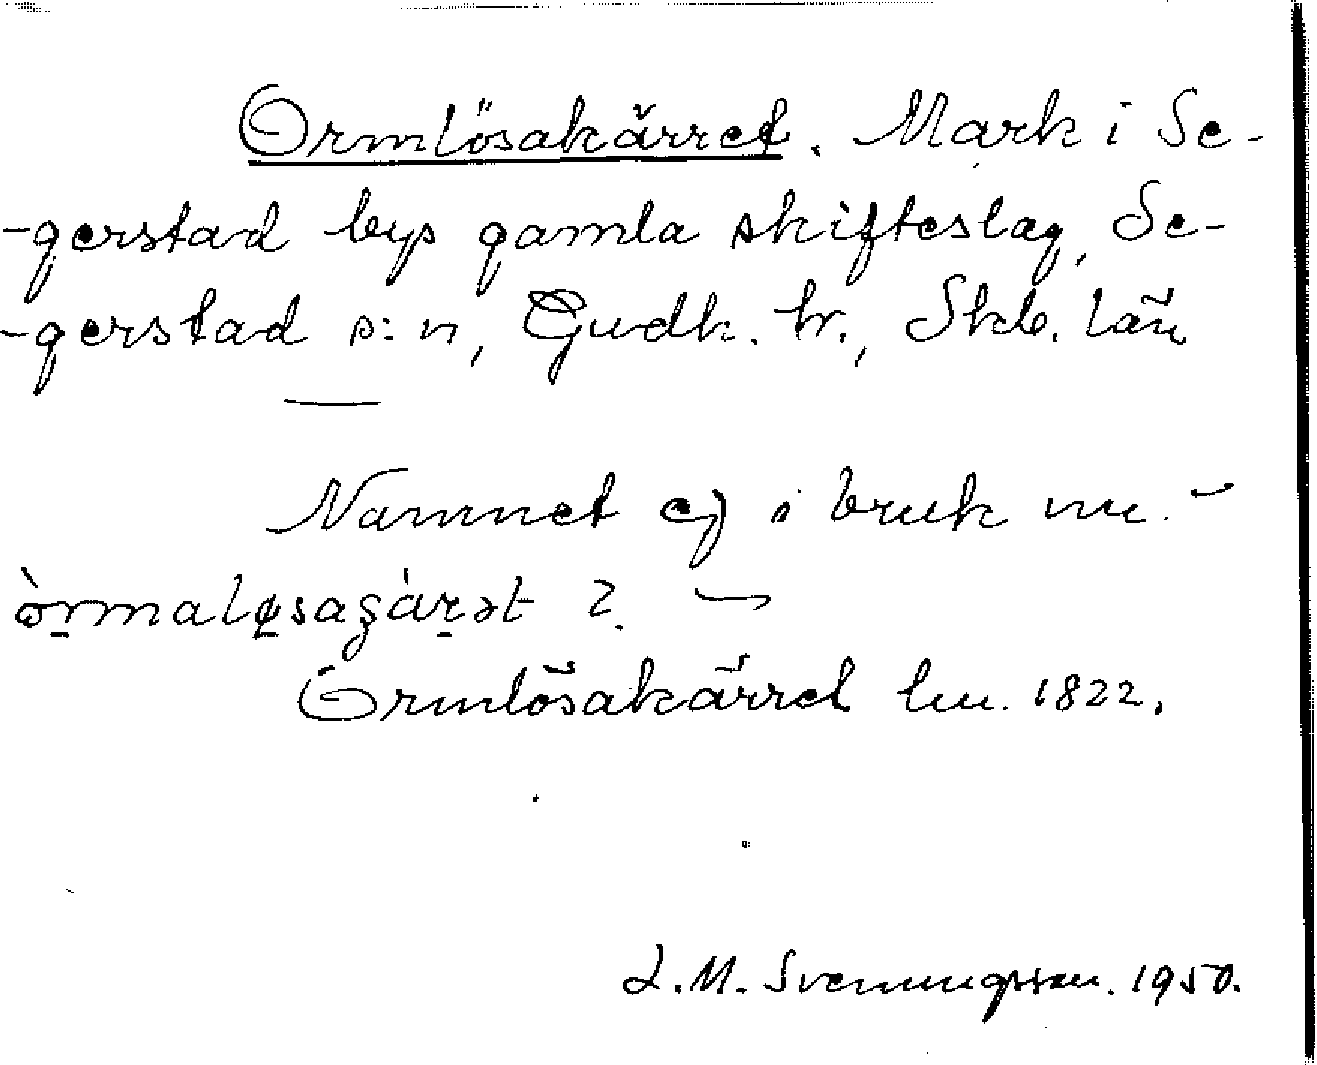 Ormlösakärret. Mark i Se-
-gerstad bys gamla skifteslag, Se-
-gerstad s:n, Gudh. hr., Skb. län
Namnet ej i bruk nu. —
òrmaløsaʒàrət ? —
Ormlösakärret lm. 1822.
L.M. Svenungsson. 1950.